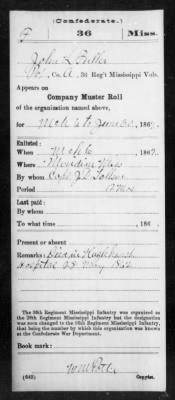 (Confederate.)
36 Miss.
John L.
Co. A, 36 Reg't Mississippi Vols.
Appears on
Company Muster Roll
of the organization named above,
for Mch 6 to June 30, 186
Enlisted:
When Mch 6, 186
Where Meridian Miss
By whom Capt
Period
Last paid:
By whom
To what time , 186
Present or absent
Remarks: Died in
Hospital 28 May 1862
The 36th Regiment Mississippi Infantry was organized as
the 28th Regiment Mississippi Infantry but the designation
was soon changed to the 36th Regiment Mississippi Infantry,
that being the number by which this organization was known
at the Confederate War Department.
Book mark:
(642) Copyist.